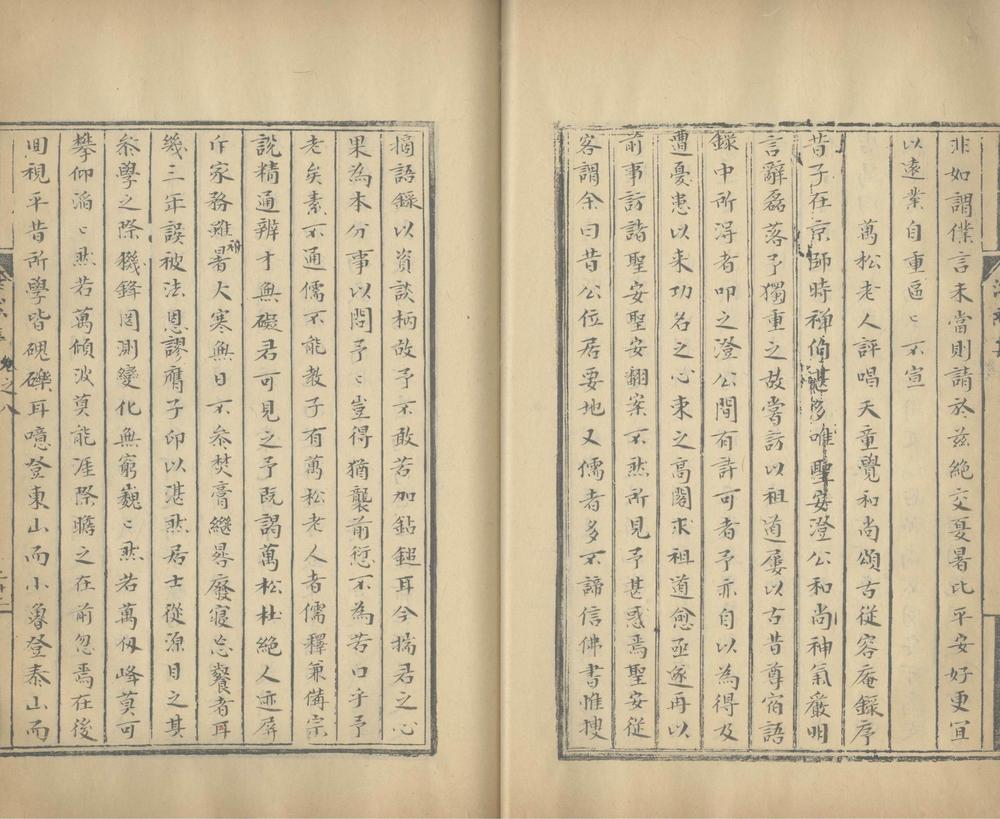 非如謂僕言未當則請於茲絶交夏暑比平安好更冝
以遠業自重區〻不宣
萬松老人評唱天童覺和尚頌古從容庵録序
昔予在京師時禅伯甚多唯聖安澄公和尚神氣嚴明
言辭磊落予獨重之故嘗訪以祖道屡以古昔尊宿語
録中所淂者叩之澄公間有許可者予亦自以為得及
遭憂患以来功名之心束之高閣求祖道愈亟遂再以
前事訪諸聖安聖安翻案不然所見予甚惑焉聖安從
容謂余曰昔公位居要地又儒者多不諦信佛書惟搜
摘語録以資談柄故予不敢苦加鉆鎚耳今揣君之心
果為本分事以問予〻豈得猶襲前愆不為苦口乎予
老矣素不通儒不能教子有萬松老人者儒釋兼備宗
說精通辨才無礙君可見之予既謁萬松杜絶人迹屏
斥家務雖祁暑大寒無日不叅焚膏繼晷廢寝忘餐者耳
幾三年誤被法恩謬膺子印以湛然居士從源目之其
叅學之際機鋒罔測變化無窮巍〻然若萬仭峰莫可
攀仰滔〻然若萬傾波莫能涯際瞻之在前忽焉在後
囬視平昔所學皆磈礫耳噫登東山而小魯登泰山而
卷之八